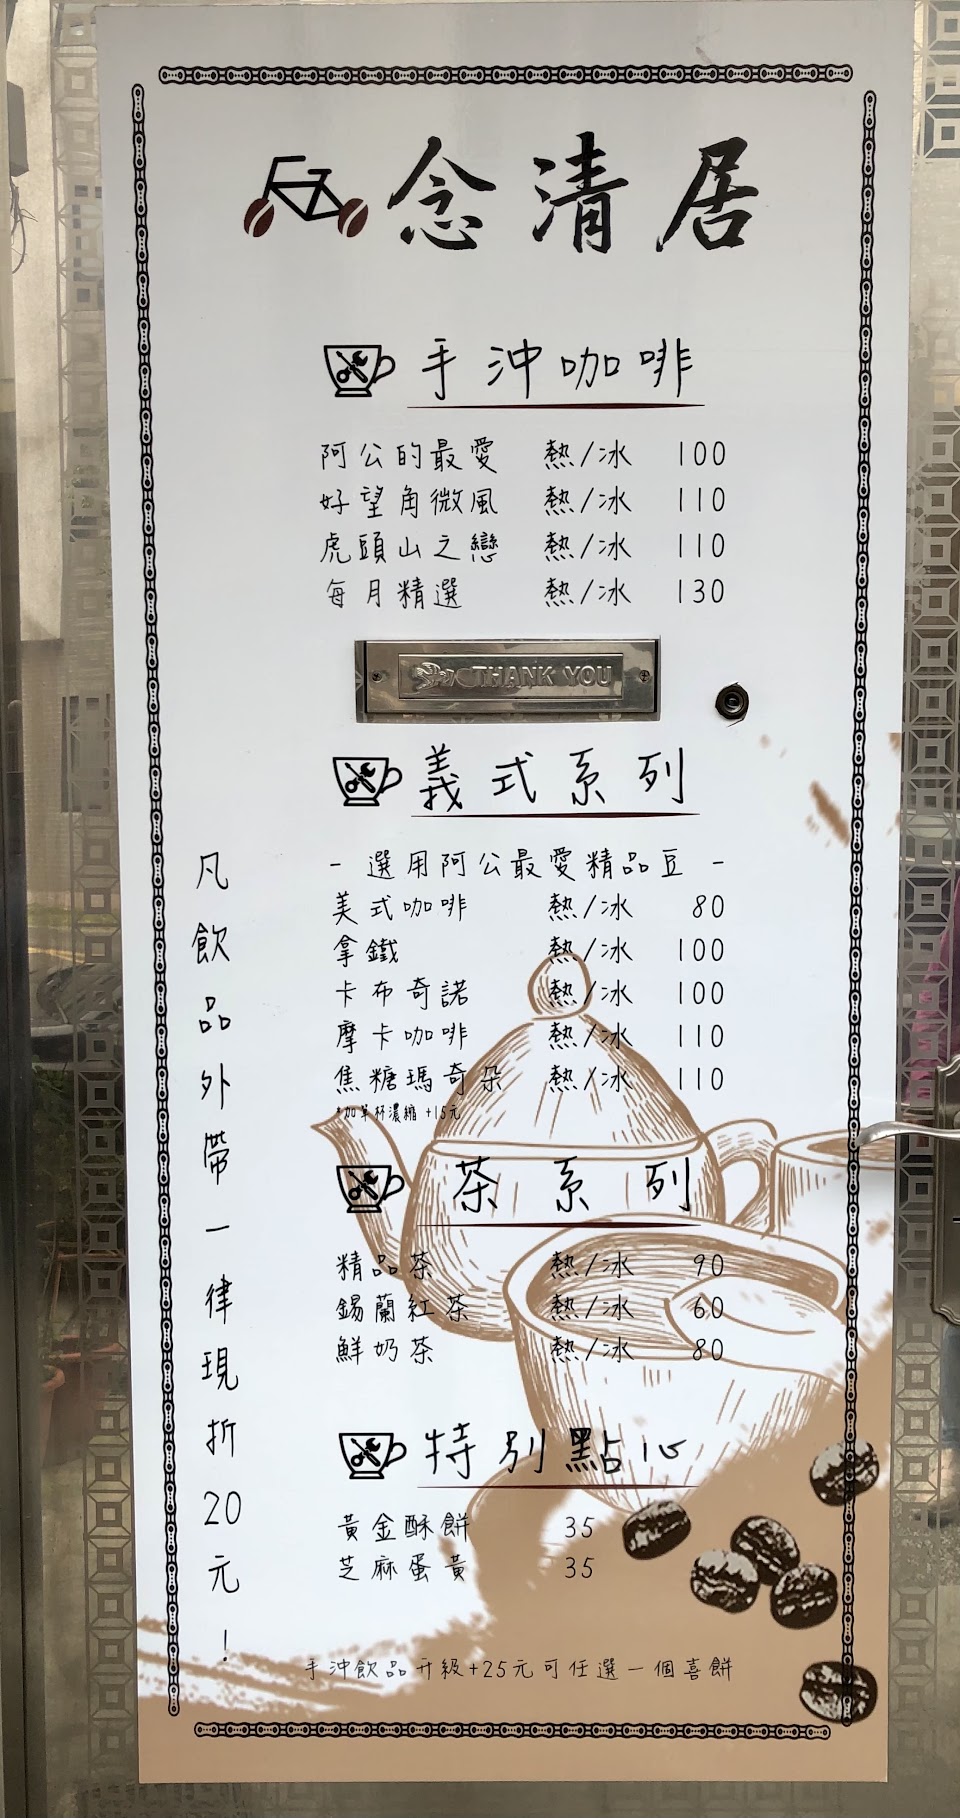 念清居
手沖咖啡
阿公的最愛 熱/冰 100
好望角微風 熱/冰 110
虎頭山之戀 熱/冰 110
每月精選 熱/冰 130
THANK YOU
義式系列
- 選用阿公最愛精品豆 -
美式咖啡 熱/冰 80
拿鐵 熱/冰 100
卡布奇諾 熱/冰 100
摩卡咖啡 熱/冰 110
焦糖瑪奇朵 熱/冰 110
*加單杯濃縮 +15元
茶系列
精品茶 熱/冰 90
錫蘭紅茶 熱/冰 60
鮮奶茶 熱/冰 80
特別點心
黃金酥餅 35
芝麻蛋黃 35
手沖飲品升級+25元可任選一個喜餅
凡飲品外帶一律現折20元!